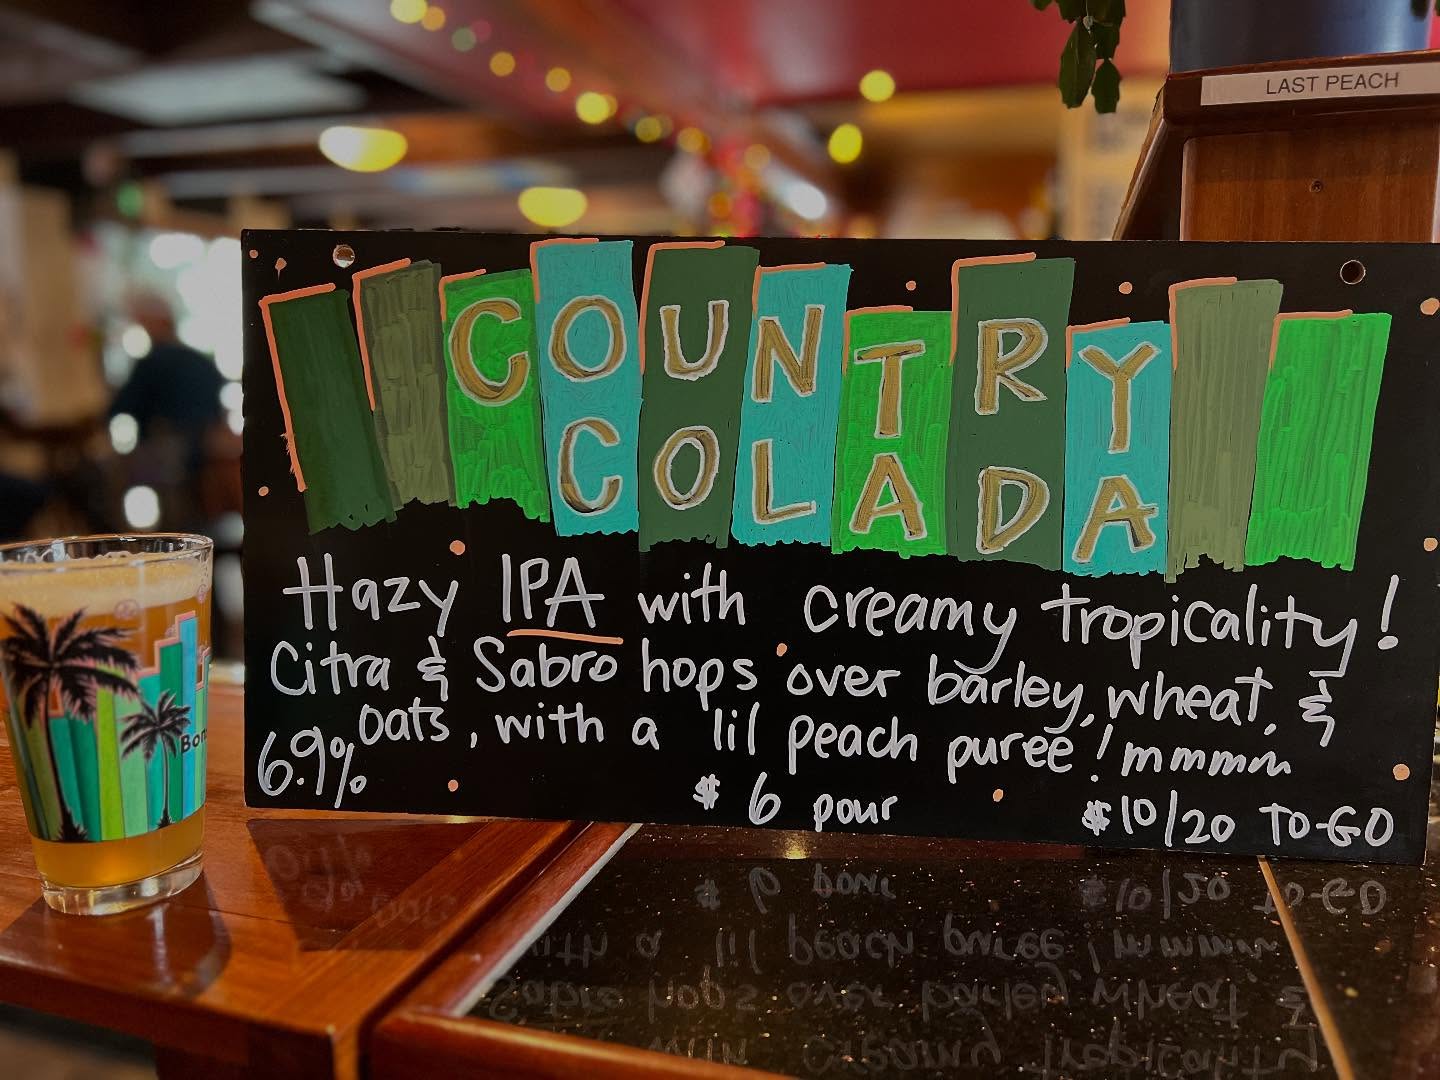 LAST PEACH
COUNTRY
COLADA
Hazy IPA with creamy tropicality!
Citra & Sabro hops over barley, wheat, &
oats, with a lil peach puree! mmmmm
6.9%
$6 pour
$10/20 TO-GO